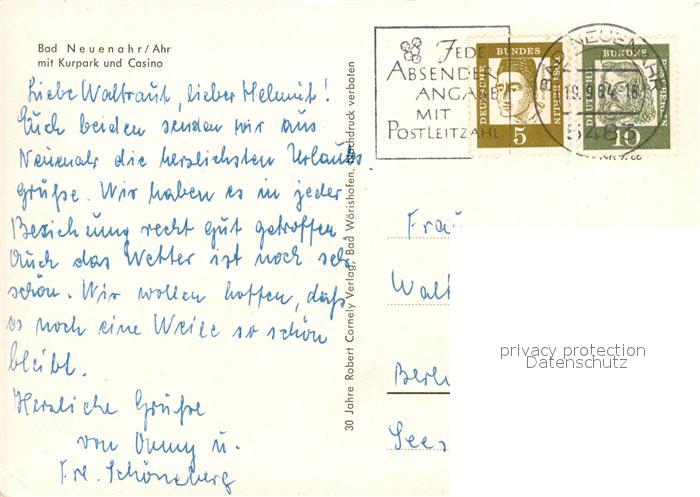 Bad Neuenahr/Ahr
mit Kurpark und Casino
Liebe Waltraut, lieber Helmut!
Euch beiden senden wir aus
Neuenahr die herzlichsten Urlaubs-
grüße. Wir haben es in jeder
Beziehung recht gut getroffen
Auch das Wetter ist noch sehr
schön. Wir wollen hoffen, daß
es noch eine Weile so schön
bleibt.
Herzliche Grüße
von Omny u.
Frl. Schöneberg
30 Jahre Robert Cornely Verlag, Bad Wörishofen, Nachdruck verboten
JEDE
ABSENDER
ANGABE
MIT
POSTLEITZAHL
BUNDES
DEUTSCHE
POST BERLIN
5
BAD NEUENAHR
19.9.64-16
5483
BUNDES
DEUTSCHE
POST BERLIN
10
Frau
Walt
Berl
Sees
privacy protection
Datenschutz